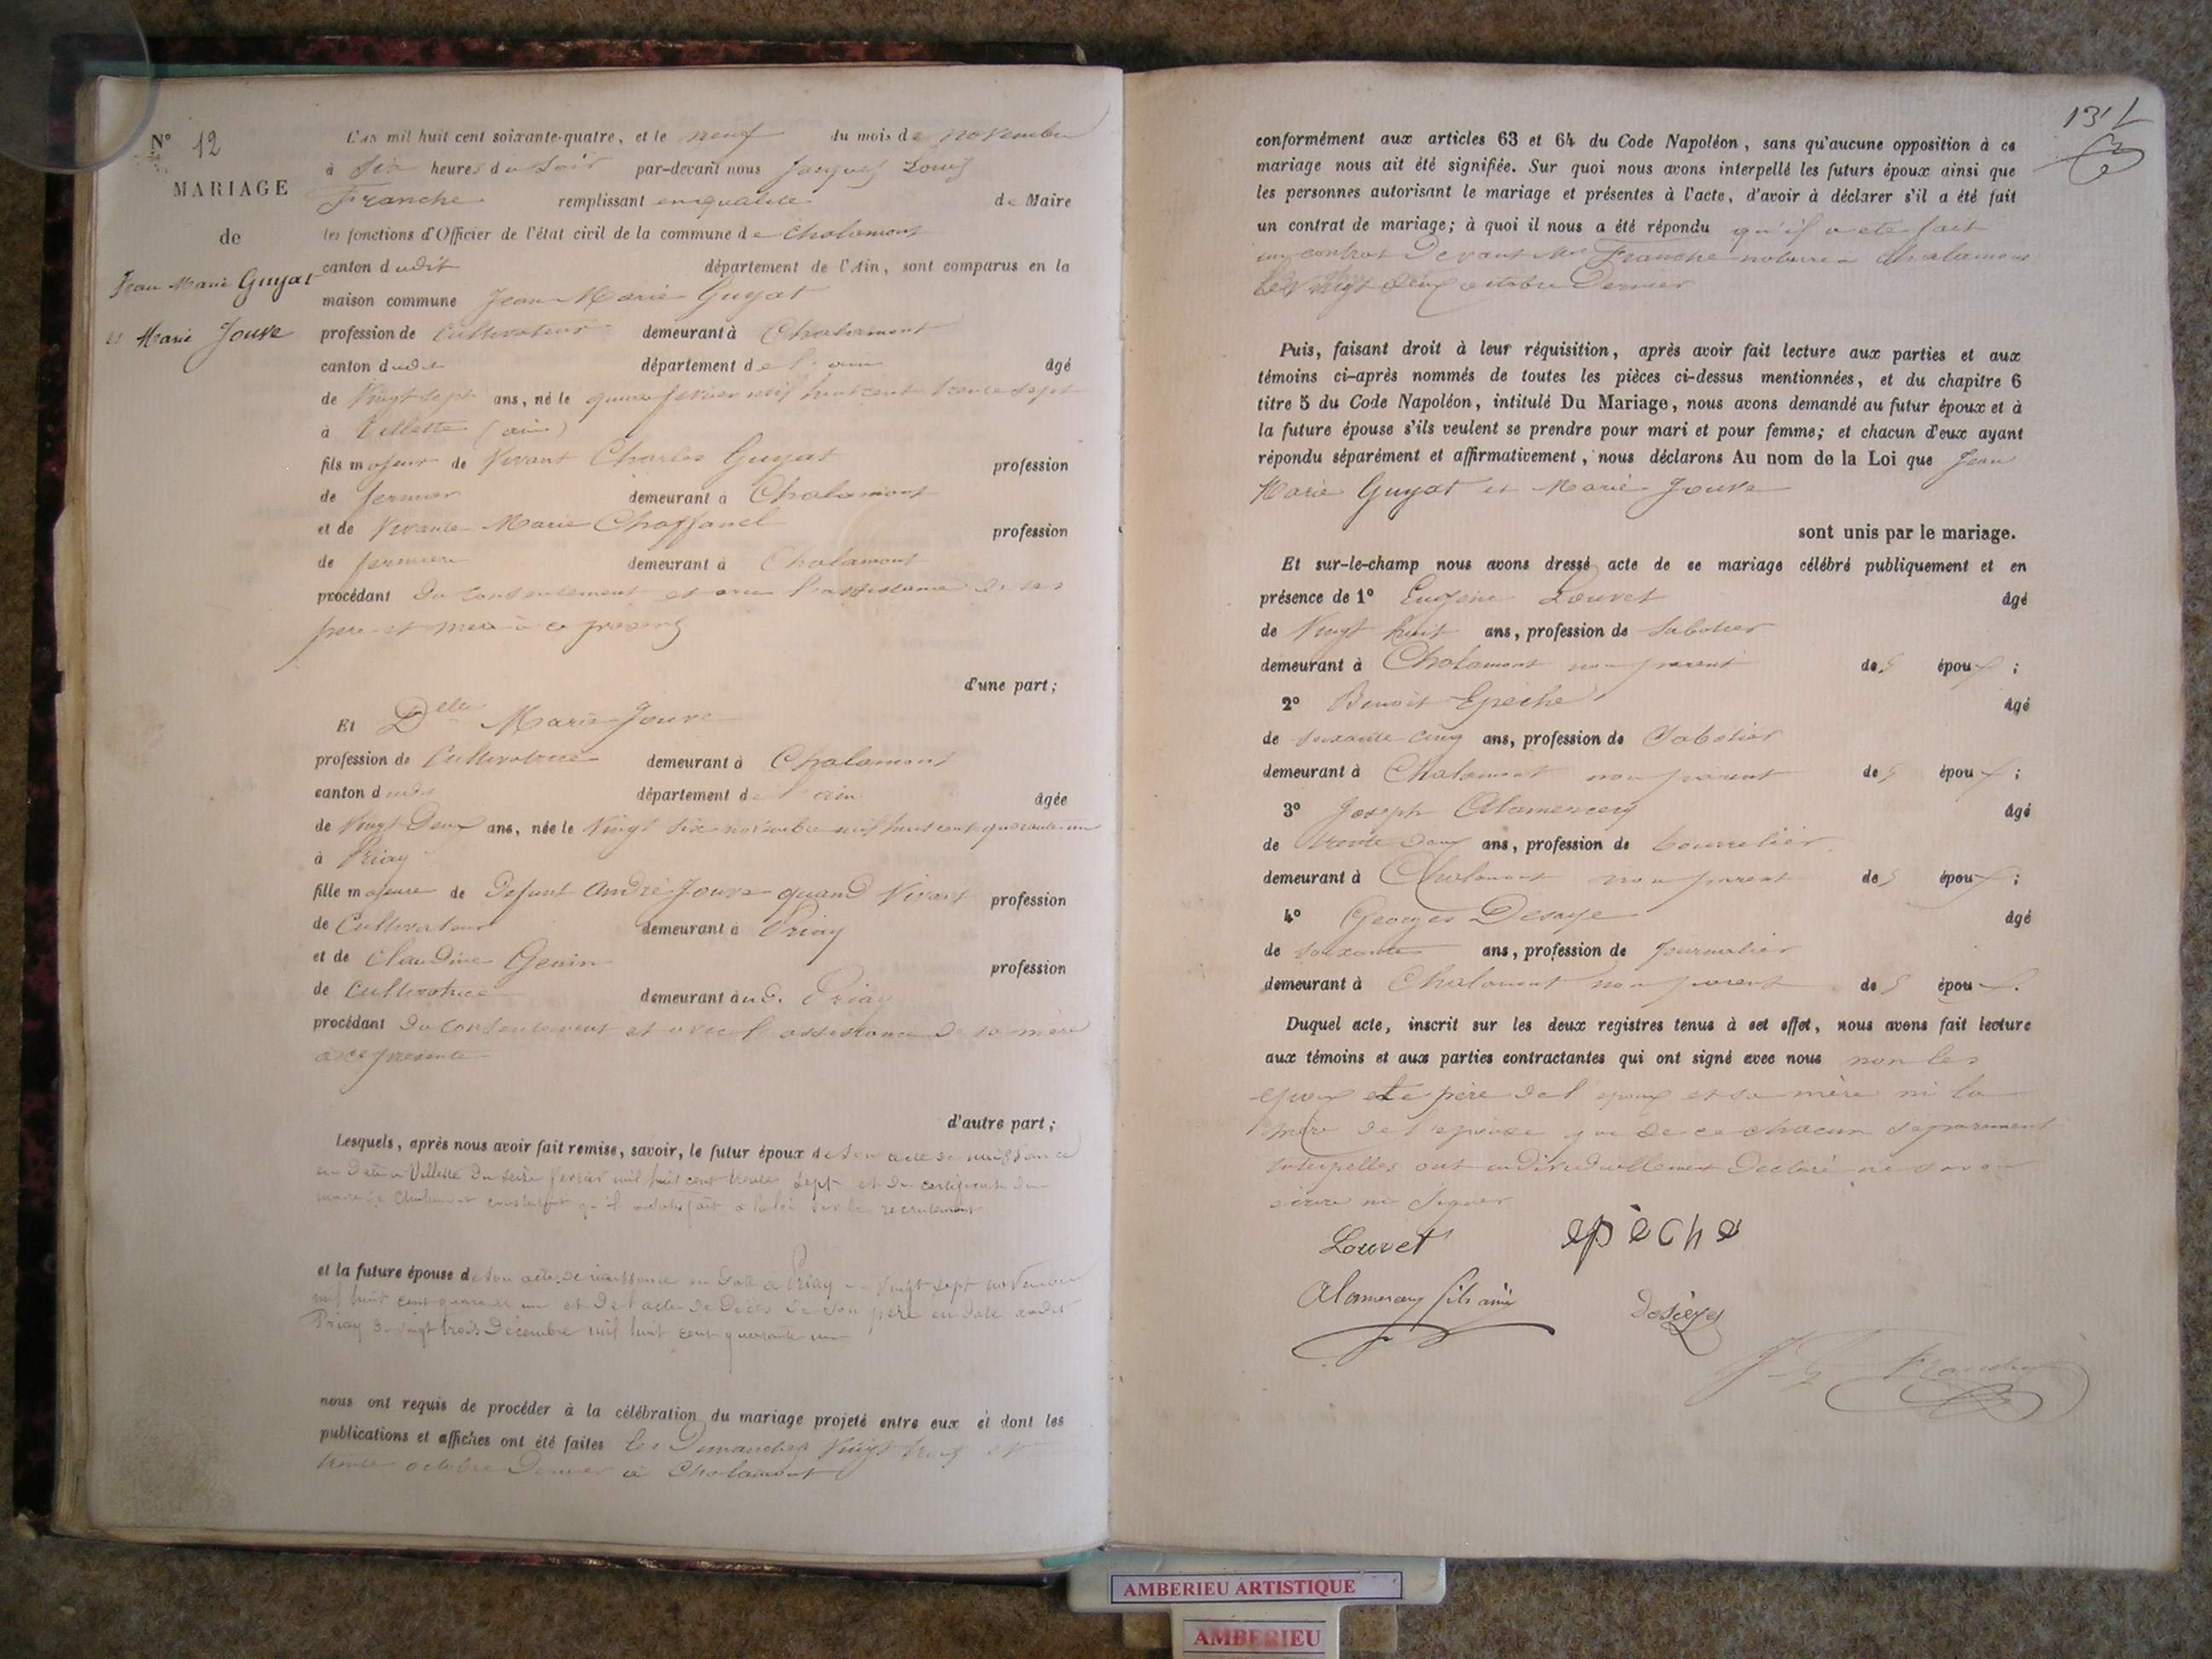 N° 12
MARIAGE
de
Jean Marie Guyat
et Marie Jouve
L'an mil huit cent soixante-quatre, et le neuf du mois de novembre
à Six heures du Soir par-devant nous Jacques Louis
Franche remplissant en qualité de Maire
les fonctions d'Officier de l'état civil de la commune de Chalamont
canton dudit département de l'Ain, sont comparus en la
maison commune Jean Marie Guyat
profession de Cultivateur demeurant à Chalamont
canton dudit département de l'ain âgé
de Vingt sept ans, né le quinze fevrier mil huit cent trente sept
à Villette (ain)
fils majeur de Vivant Charles Guyat profession
de fermier demeurant à Chalamont
et de Vivante Marie Choffanel profession
de fermiere demeurant à Chalamont
procédant du consentement et avec l'assistance de ses
pere et mere à ce presents
d'une part;
Et Delle Marie Jouve
profession de Cultivatrice demeurant à Chalamont
canton dudit département de l'ain âgée
de Vingt Deux ans, née le Vingt six novembre mil huit cent quarante un
à Priay
fille majeure de Defunt André Jouve quand Vivait profession
de Cultivateur demeurant à Priay
et de Claudine Genin profession
de Cultivatrice demeurant aud. Priay
procédant du consentement et avec l'assistance de sa mère
à ce presente
d'autre part;
Lesquels, après nous avoir fait remise, savoir, le futur époux de son acte de naissance
en date à Villette du seize fevrier mil huit cent trente sept et du certificat du
maire de Chalamont constatant qu'il a satisfait à la loi sur le recrutement
et la future épouse de son acte de naissance en date à Priay du vingt sept novembre
mil huit cent quarante un et de l'acte de décès de son père en date audit
Priay du vingt trois Décembre mil huit cent quarante un
nous ont requis de procéder à la célébration du mariage projeté entre eux et dont les
publications et affiches ont été faites les Dimanches Vingt trois et
trente octobre Dernier à Chalamont
131
conformément aux articles 63 et 64 du Code Napoléon, sans qu'aucune opposition à ce
mariage nous ait été signifiée. Sur quoi nous avons interpellé les futurs époux ainsi que
les personnes autorisant le mariage et présentes à l'acte, d'avoir à déclarer s'il a été fait
un contrat de mariage; à quoi il nous a été répondu qu'il a été fait
un contrat Devant Me Franche notaire à Chalamont
le Vingt Deux octobre Dernier
Puis, faisant droit à leur réquisition, après avoir fait lecture aux parties et aux
témoins ci-après nommés de toutes les pièces ci-dessus mentionnées, et du chapitre 6
titre 5 du Code Napoléon, intitulé Du Mariage, nous avons demandé au futur époux et à
la future épouse s'ils veulent se prendre pour mari et pour femme; et chacun d'eux ayant
répondu séparément et affirmativement, nous déclarons Au nom de la Loi que Jean
Marie Guyat et Marie Jouve
sont unis par le mariage.
Et sur-le-champ nous avons dressé acte de ce mariage célébré publiquement et en
présence de 1° Eugène Louvet âgé
de Vingt huit ans, profession de Sabotier
demeurant à Chalamont non parent des époux;
2° Benoit Epeche âgé
de soixante cinq ans, profession de Sabotier
demeurant à Chalamont non parent des époux;
3° Joseph Alamercery âgé
de trente Deux ans, profession de bourrelier
demeurant à Chalamont non parent des époux;
4° Georges Desaye âgé
de soixante ans, profession de Journalier
demeurant à Chalamont non parent des époux.
Duquel acte, inscrit sur les deux registres tenus à cet effet, nous avons fait lecture
aux témoins et aux parties contractantes qui ont signé avec nous non les
epoux et le père de l'epoux et sa mère ni la
mère de l'epouse qui de ce chacun séparément
interpellés ont individuellement Déclaré ne savoir
écrire ni Signer
Louvet epèche
Alamercery fils ainé
J L Franche
AMBERIEU ARTISTIQUE
AMBERIEU